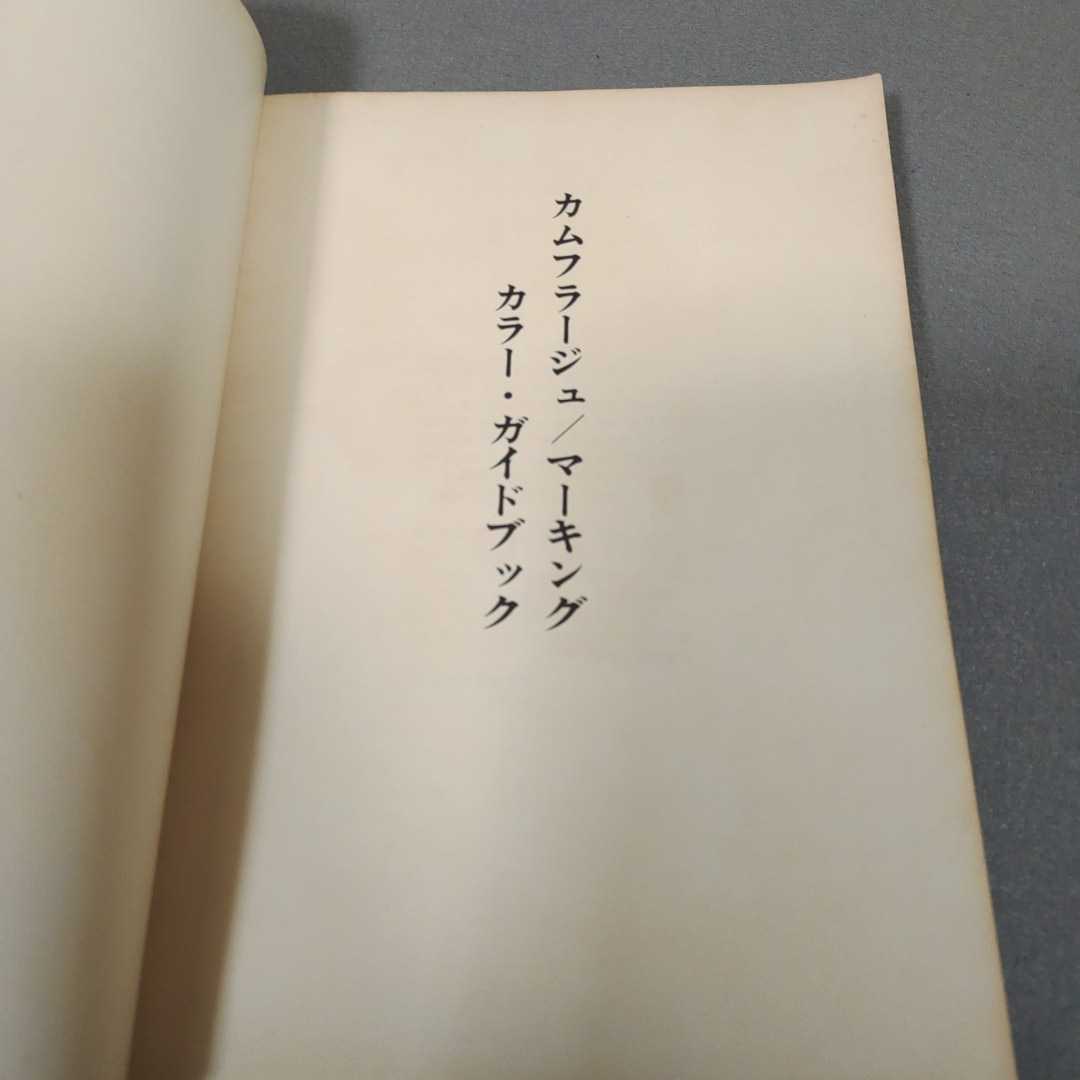 カムフラージュ／マーキング
カラー・ガイドブック